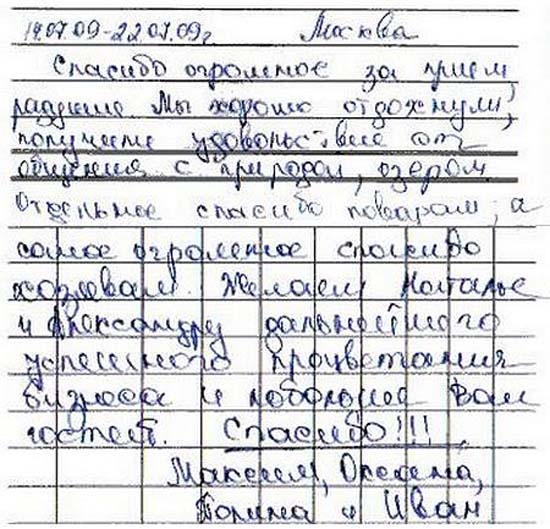 14.07.09-22.07.09г Москва
Спасибо огромное за прием,
радушие Мы хорошо отдохнули,
получили удовольствие от
общения с природой, озером
Отдельное спасибо поварам, а
самое огромное спасибо
хозяевам. Желаем Наталье
и Александру дальнейшего
успешного процветания
бизнеса и побольше Вам
гостей. Спасибо!!!
Максим, Оксана,
Полина и Иван